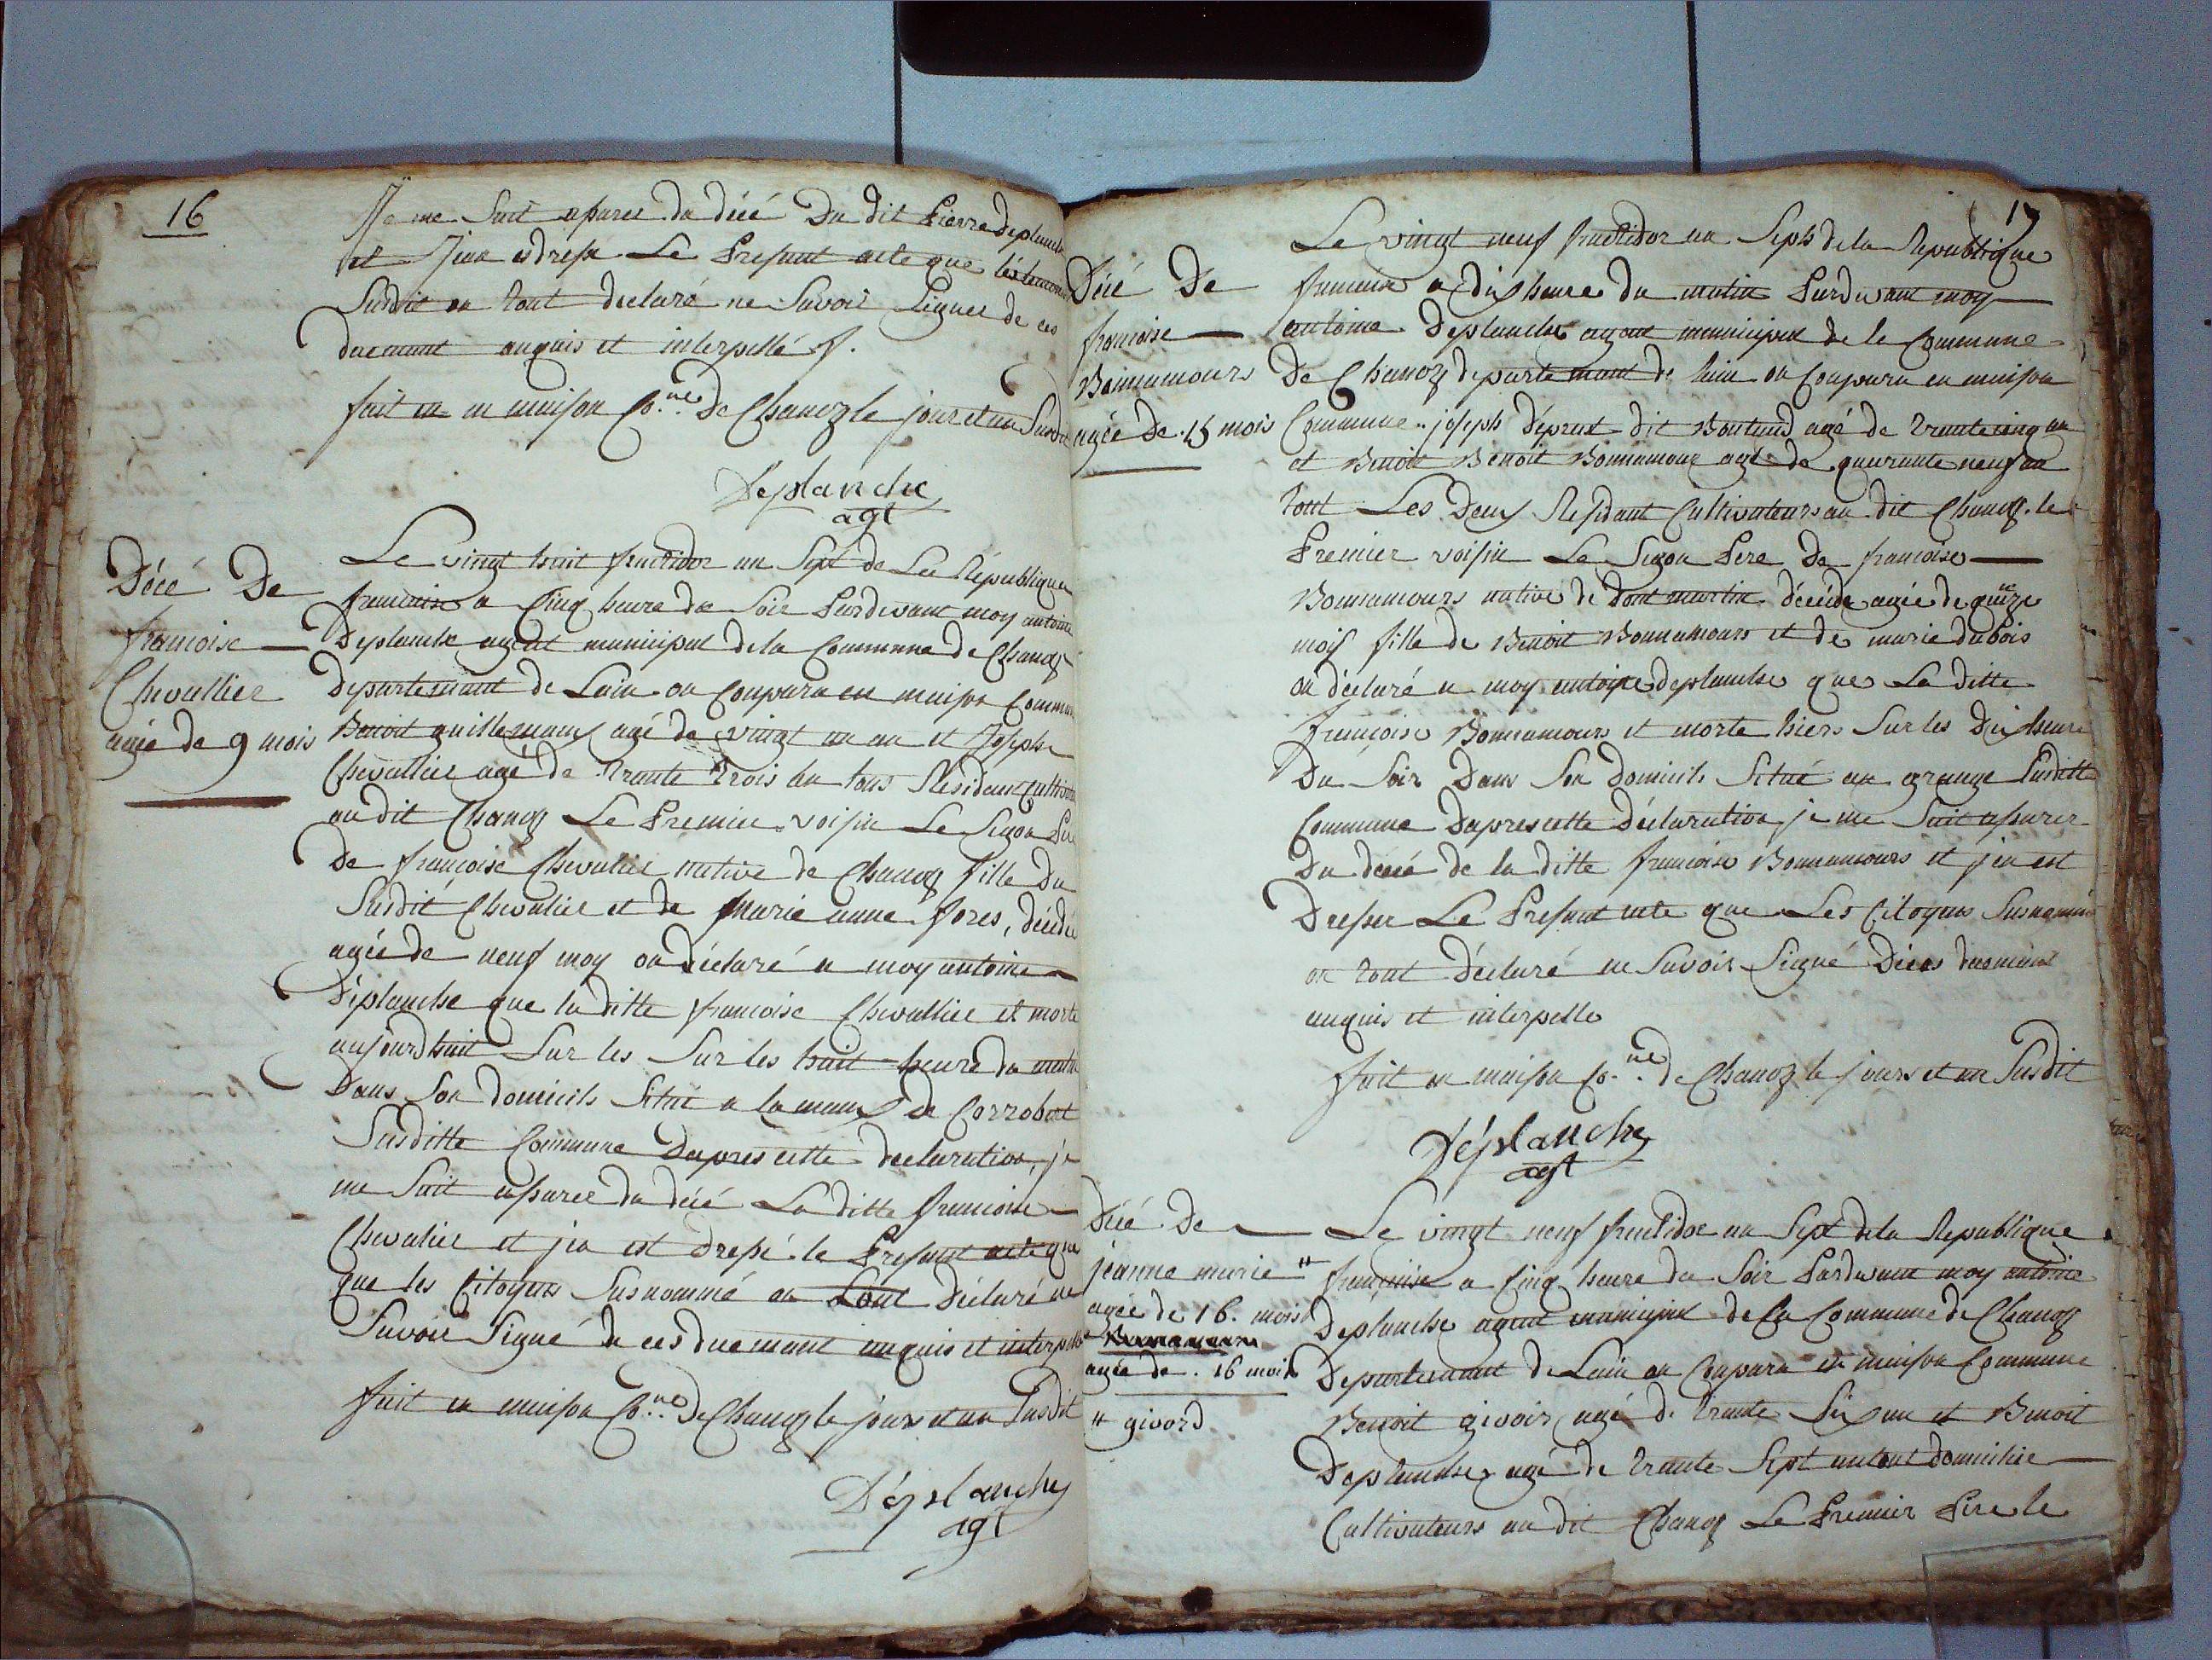 16
Je me suit asurer du décé Du dit Pierre Deplanche
et Jean edresse Le Present acte que les temoin
Susdit on tout declaré ne Savoir Signer de ces
duemant anquis et interpellé
fait en en maison Co.ne De Chanoz le jour et an Susdit
Déplanche
agt
Décé De
françoise —
Chevallier
agée de 9 mois
Le vingt huit fructidor an Sept de La République
francaise a Cinq heure du Soir Pardevant moy antoine
Deplanche agent municipal de la Commune de Chanoz
departemant de Lain on Conparu en maison Commune
Benoit guillemaux agé de vingt un an et Joseph
Chevallier agé de trante trois an tous Résidant Cultivateur
au dit Chanoz Le Premier voisin Le Segon Pere
De françoise Chevalier native de Chanoz fille Du
Susdit Chevalier et de Marie anne fores, décédée
agée de neuf moy on Déclaré a moy antoine
Déplanche que la ditte francoise Chevallier et morte
aujourdhuit Sur les Sur les huit heure du matin
Dans Son domicils Situé a la maux de Corrobert
Susditte Commune Dapres cette declaration, je
me Suit asurer du décé La ditte francoise
Chevalier et jen est dressé le Present acte que
que les Citoyens Susnommé on tout Déclaré ne
Savoir Signé de ces duemant anquis et interpellé
fait en maison Co.ne De Chanoz le jour et an Susdit
Déplanche
agt
17
Décé De
francoise —
Bonnamours
agée De 15 mois
Le vingt neuf fructidor an Sept de la Republique
francaise a dix heure du matin Pardevant moy
antoine Deplanche agent municipal de la Commune
De Chanoz departemant de lain on Conparu en maison
Commune joseph Déprost dit Boutaud agé de trante cinq an
et Benoit Benoit Bonnamour agé de quarante neuf an
tout Les Deux Residant Cultivateurs au dit Chanoz le
Premier voisin Le Segon Pere De francoise —
Bonnamours native de Dont martin décédé agée de quinze
mois fille de Benoit Bonnamours et de marie dubois
on déclaré a moy antoine deplanche que La ditte
françoise Bonnamours et morte hiers Sur les Dix heure
Du Soir Dans Son Domicils Situé au grange Susditte
Commune Dapres cette Déclaration, je me Suit asurer
Du décé de la ditte francoise Bonnamours et jen est
Dresser Le Present acte que Les Citoyens Susnommé
on tout Déclaré ne Savoir Signé Déces duemant
anquis et interpelle
fait en maison Co.ne de Chanoz le jours et an Susdit
Déplanche
agt
Décé De —
jeanne marie "
agée de 16. mois
agée de 16 mois
" givord
Le vingt neuf fructidor an Sept dela Republique
françaisse a Cinq heure du Soir Pardevant moy antoine
Deplanche agent municipal de La Commune de Chanoz
Departemant de Lain on Conparu en maison Commune
Benoit givoir agé de trante Six an et Benoit
Deplanche agé de trante Sept an tout domicilie —
Cultivateurs au dit Chanoz Le Premier Pere le